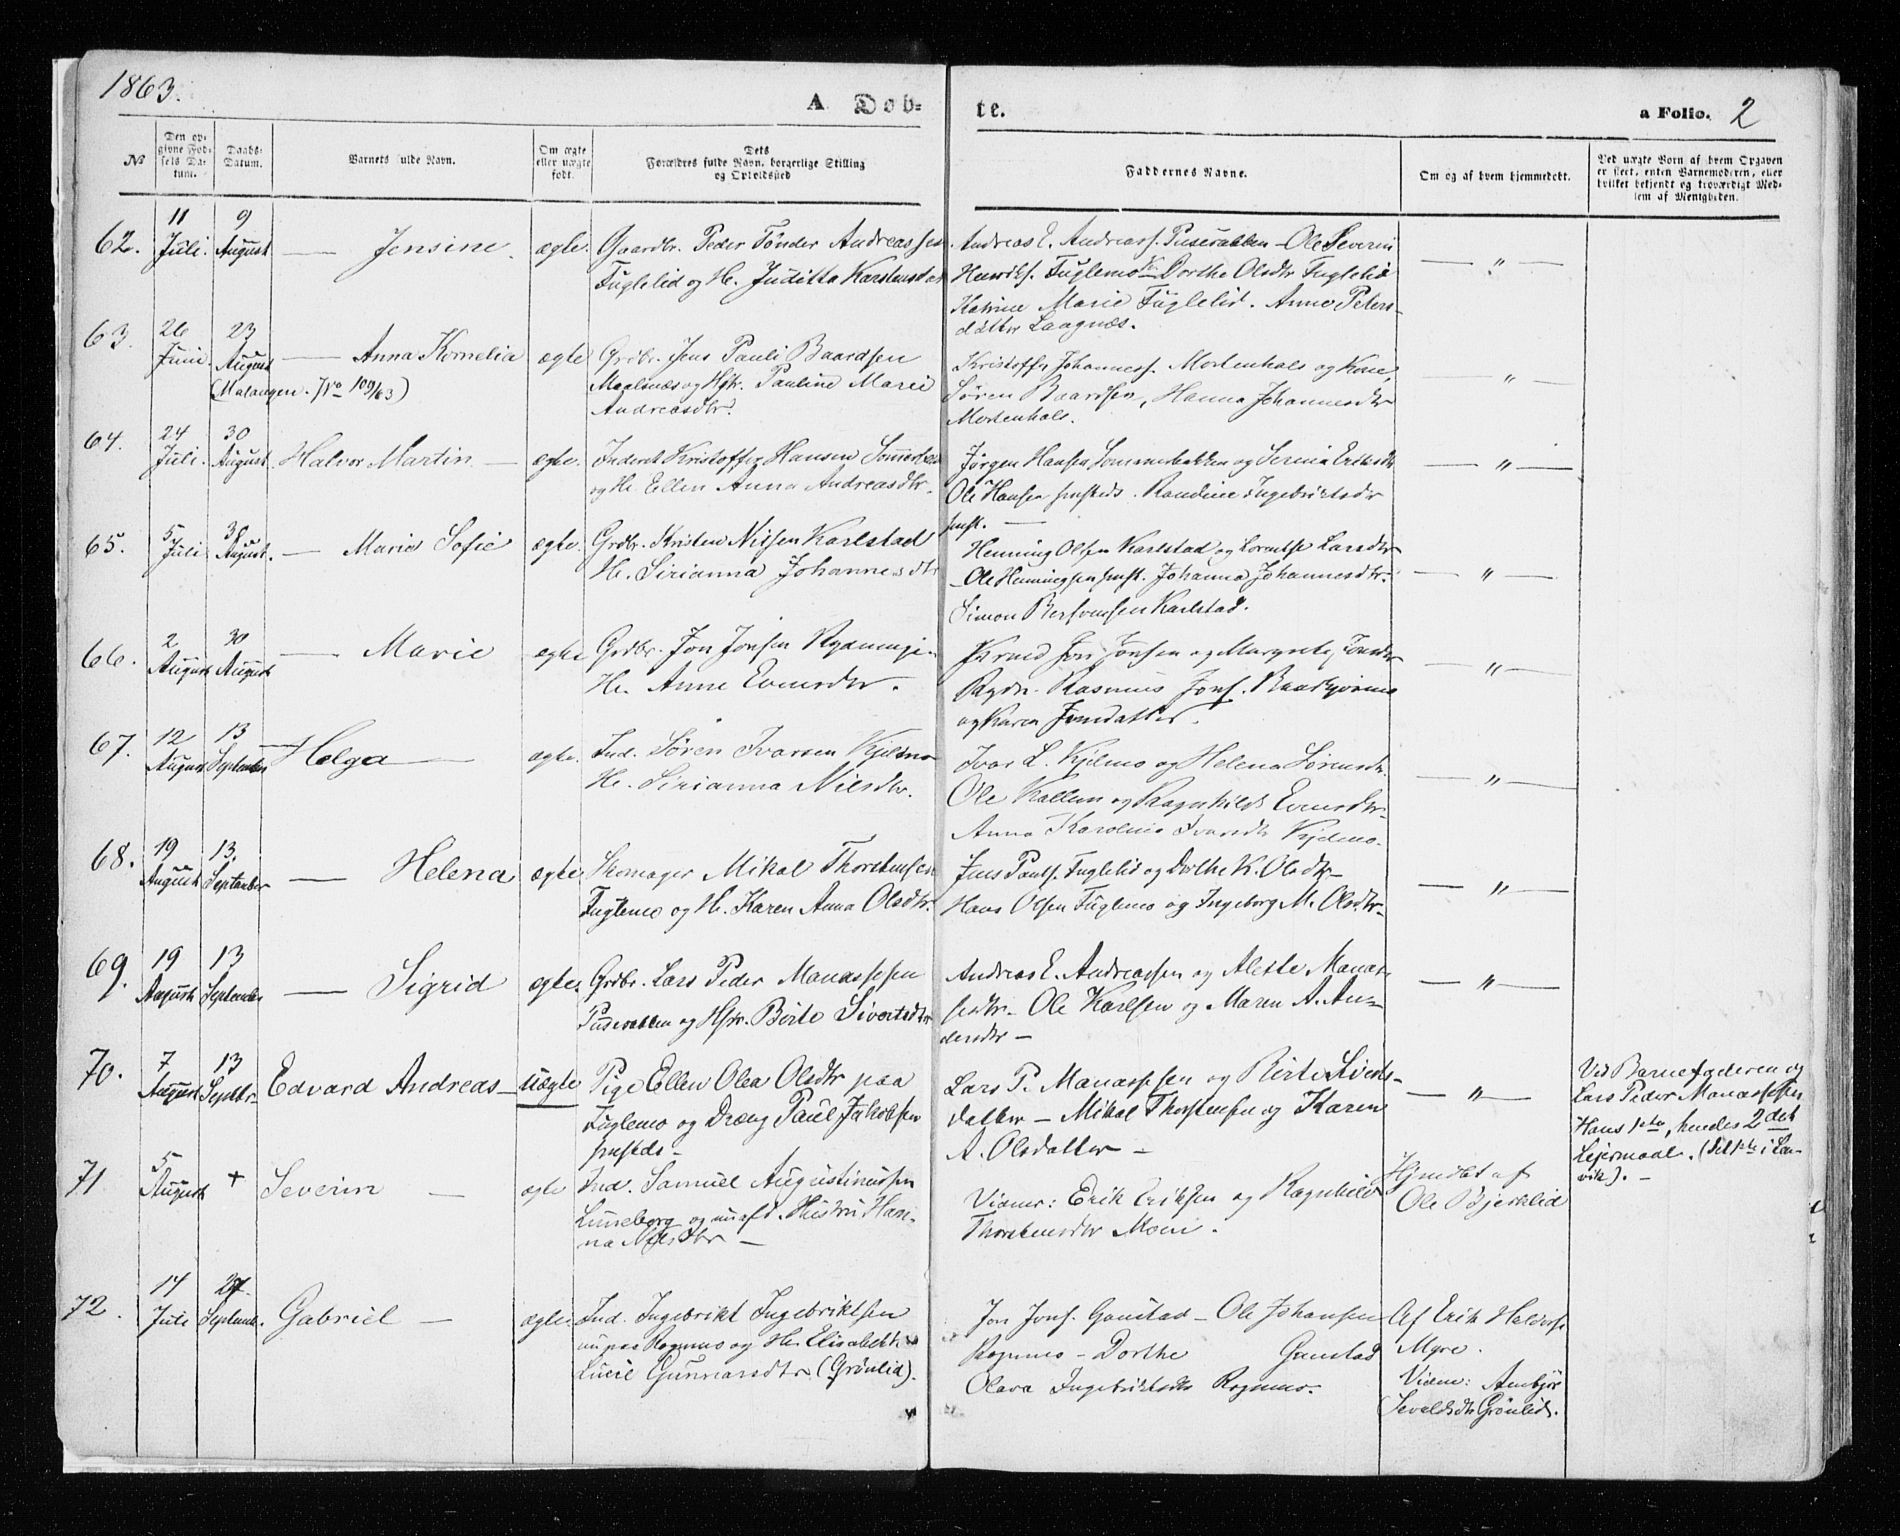 1863.
A Døb=
te.
a Folio. 2
No
Den op=
givne Fød=
sels Da=
tum.
Daabs=
Datum.
Barnets fulde Navn.
Om ægte
eller uægte
født.
Dets
Forældres fulde Navn, borgerlige Stilling
og Opholdssted
Faddernes Navne.
Om og af hvem hjemmedøbt.
Ved uægte Børn af hvem Opgaven
er skeet, enten Barnemoderen, eller
hvilket bekjendt og troværdigt Med=
lem af Menigheden.
62. 11 Juli. 9 August — Jensine. ægte.
Gaardbr. Peder Tønder Andreassen
Fuglelid og H. Juditta Karstensdatr
Andreas E. Andreass. Puseraabben - Ole Severin
Henriks. Fuglemo Dorthe Olsdtr Fuglelid
Katrine Marie Fuglelid. Anne Peters-
datter Laagnæs.
— " —
63. 26 Juni. 23 August — Anna Kornelia ægte
(Malangen. No 109/63)
Grdbr. Jens Pauli Baardsen
Maalsnæs og Hstr. Pauline Marie
Andreasdtr.
Kristoffer Johanness. Mortenhals og Kone,
Søren Baardsen, Hanna Johannesdtr
Mortenhals.
— " —
64. 24 Juli. 30 August Halvor Martin — ægte.
Inderst Kristoffer Hansen
og H. Ellen Anna Andreasdtr.
Jørgen Hansen Sommerbakken og Serina Eriksdtr
Ole Hansen sammesteds. Randine Ingebrigtsdtr
— " —
65. 5 Juli August. — Maria Sofie ægte.
Grdbr. Kristen Nilsen Karlstad
H. Sirianna Johannesdtr
Henning Olsen Karlstad og Lorentse Larsdtr
Ole Henningsen smst. Johanna Johannesdtr.
Simon Karlstad.
— " —
66. 2 August 30 August — Marie ægte
Grdbr. Jon Jonsen
H. Anne Evensdtr.
Jon Jonsen og
Rasmus Jons.
og Karen Jonsdatter.
— " —
67. 12 August 13 September Helga — ægte.
Ind. Søren Ivarsen Kjelmo
H. Sirianna Nilsdtr.
Ivar L. Kjelmo og Helena Sørensdtr.
Ole Kallum og Ragnhild Evensdtr
Anna Karolina Ivarsdtr Kjelmo.
— " —
68. 19 August 13. September — Helena ægte
Skomager Mikal Thorstensen
Fuglemo og H. Karen Anna Olsdtr.
Jens Pauls. Fuglelid og Dorthe K. Olsdtr-
Hans Olsen Fuglemo og Ingeborg M. Olsdtr-
— " —
69. 19 August 13 September — Sigrid ægte.
Grdbr. Lars Peder Manassesen
Puseraabben og Hstr. Berte Sivertsdtr
Andreas E. Andreassen og Alette Manas-
sesdtr- Ole Karlsen og Maren A. An-
dersdtr —
— " —
70. 7 August 13 Septbr- Edvard Andreas — uægte
Pige Ellen Olea Olsdtr paa
Fuglemo og Dreng Paul Jakobsen
smsteds —
Lars P. Manassesen og Berte Siverts-
datter — Mikal Thorstensen og Karen
A. Olsdatter —
— " —
Ved Barnefaderen og
Lars Peder Manassesen
Hans 1ste, hendes 2det
Lejermaal. (det 1ste i Len-
vik). —
71 5 August + Severin — ægte
Ind. Samuel Augustinussen
Luneborg og Hustru Han-
na Nilsdtr —
Vidner: Erik Eriksen og Ragnhild
Thorstensdtr Moen.
Hjmdøbt af
Ole Bjerklid
72. 14 Juli 27. Septemb. Gabriel — ægte
Ind. Ingebrikt Ingebriktsen
nu paa Rognmo og H. Elisabeth
Lucie Gunnarsdtr (Grønlid).
Jon Jons. Gamstad - Ole Johansen
Rognmo - Dorthe Gamstad
Olava Ingebriktsdtr Rognmo.
Af Erik Haldors.
Myre.
Vidne: Arnbjør
Sevaldsdtr Grønlid.